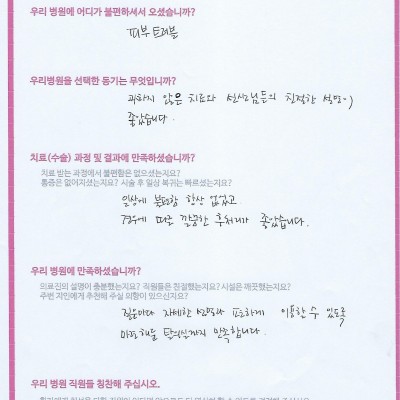 우리 병원에 어디가 불편하셔서 오셨습니까?
피부 트러블
우리병원을 선택한 동기는 무엇입니까?
과하지 않은 치료와 선생님들의 친절한 설명이
좋았습니다.
치료(수술) 과정 및 결과에 만족하셨습니까?
치료 받는 과정에서 불편함은 없으셨는지요?
통증은 없어지셨는지요? 시술 후 일상 복귀는 빠르셨는지요?
일상에 불편함 항상 없었고
경우에 따른 깔끔한 후처리가 좋았습니다.
우리 병원에 만족하셨습니까?
의료진의 설명이 충분했는지요? 직원들은 친절했는지요? 시설은 깨끗했는지요?
주변 지인에게 추천해 주실 의향이 있으신지요?
질문마다 자세한 이용할 수 있도록
탈의실까지 만족합니다.
우리 병원 직원을 칭찬해 주십시오.